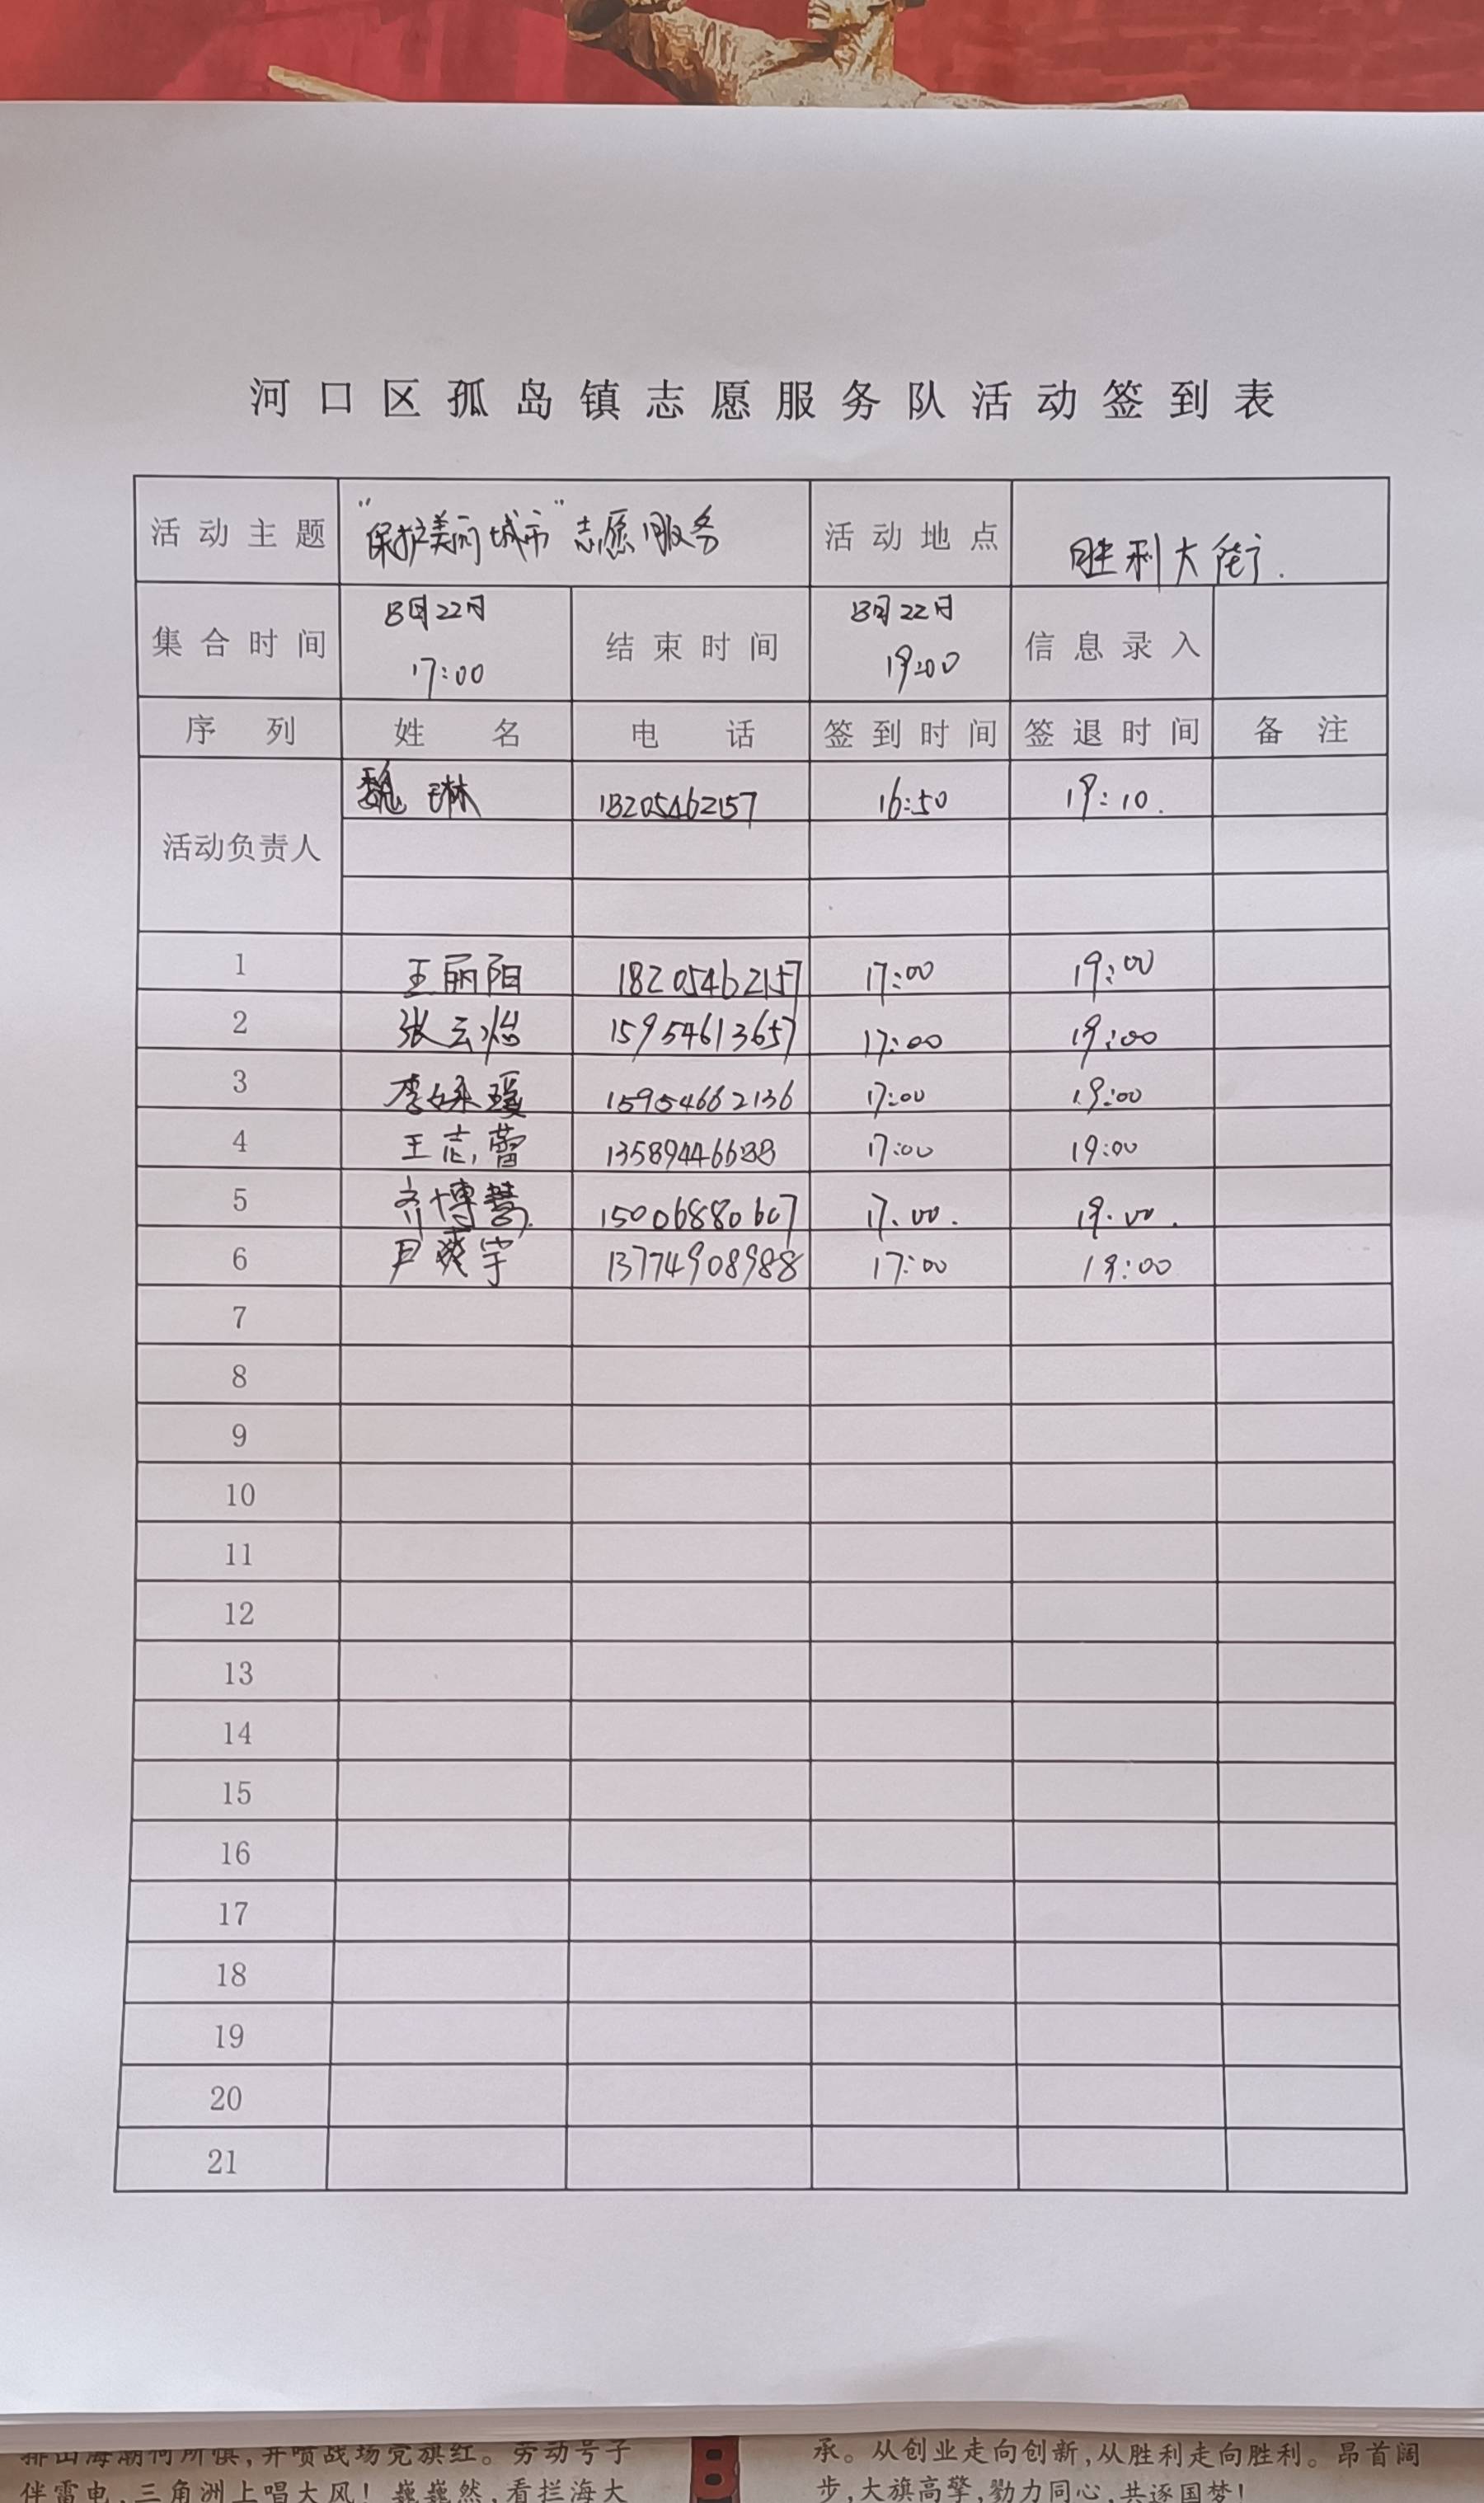 河口区孤岛镇志愿服务队活动签到表
活动主题 "保护美丽城市"志愿服务 活动地点 胜利大街.
集合时间 8月22日 17:00 结束时间 8月22日 19:00 信息录入
序列 姓名 电话 签到时间 签退时间 备注
活动负责人 魏琳 18205462157 16:50 19:10.
1 王丽阳 18205462157 17:00 19:00
2 张云怡 15954613657 17:00 19:00
3 李 瑗 15954662136 17:00 19:00
4 王志蕾 17:00 19:00
5 齐博慧. 15006880607 17:00. 19:00.
6 尹 宇 13774908988 17:00 19:00
7
8
9
10
11
12
13
14
15
16
17
18
19
20
21
排山海潮何所惧,并喷战场党旗红。劳动号子
伴雷电,三角洲上唱大风!巍巍然,看拦海大
承。从创业走向创新,从胜利走向胜利。昂首阔
步,大旗高擎,勠力同心,共逐国梦!